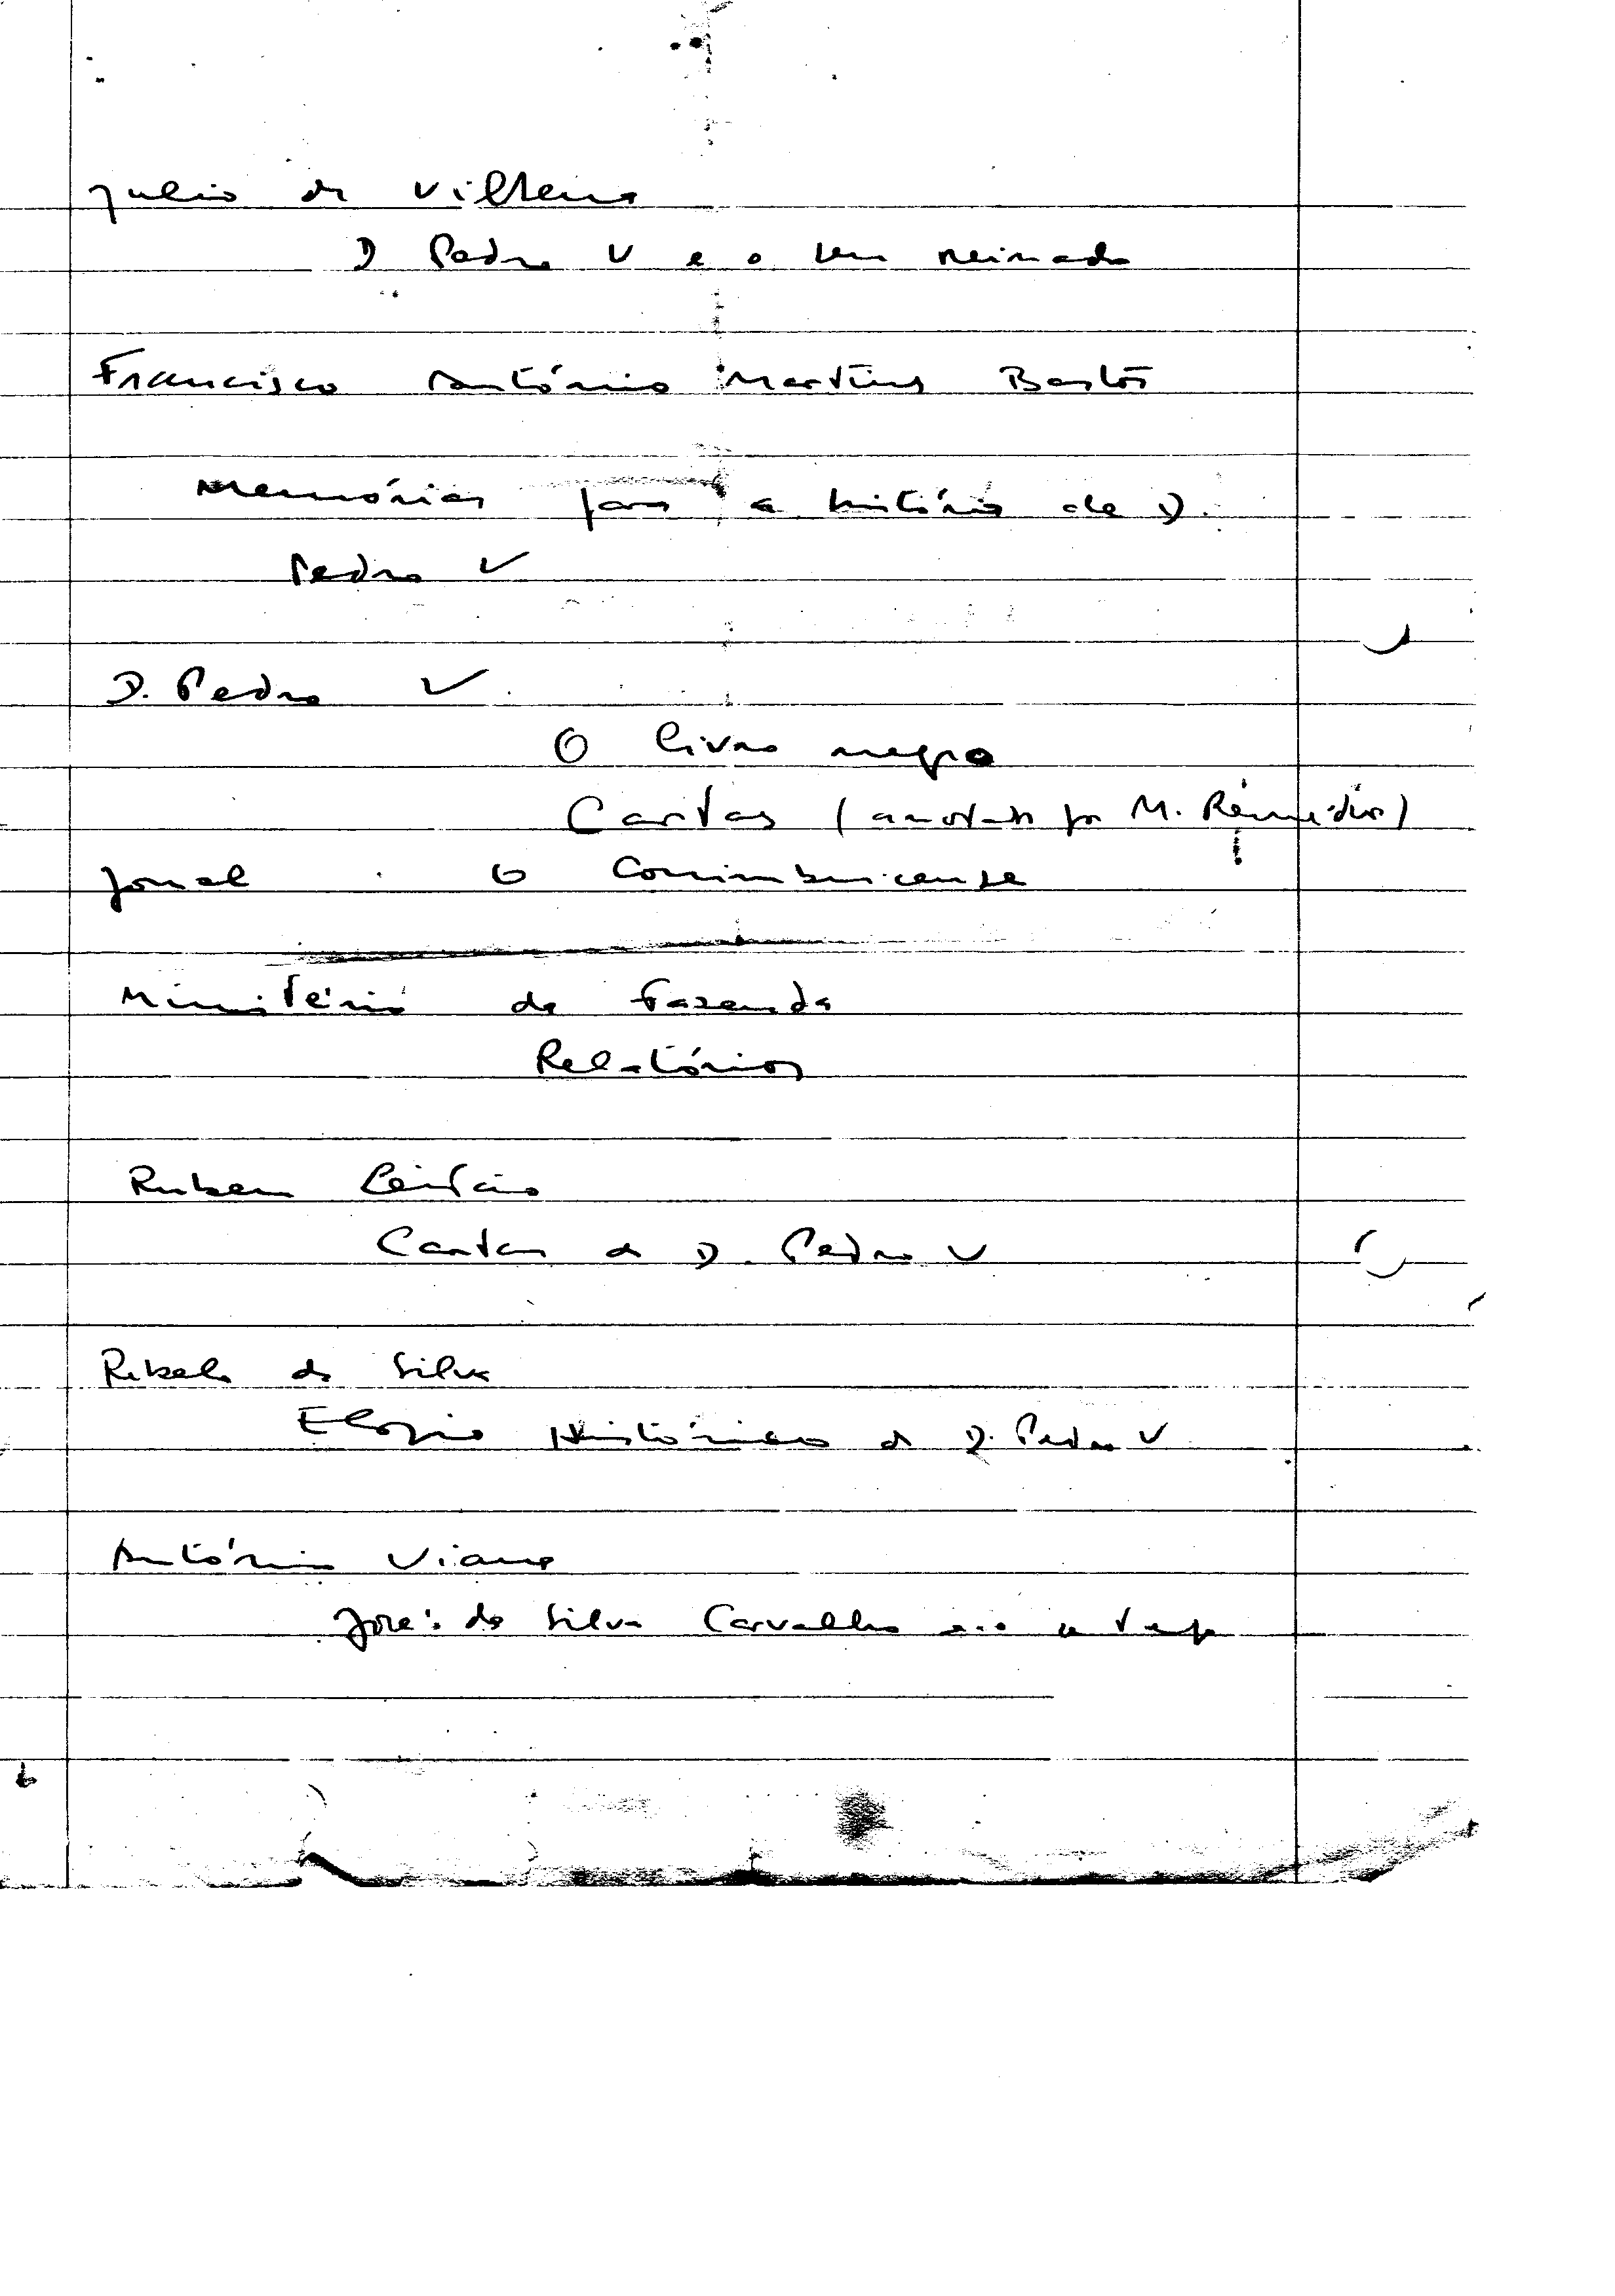 Julio de Vilhena
D Pedro V e o seu reinado
Francisco António Martins Bastos
Memórias para a história de D.
Pedro V
D. Pedro V
O livro negro
Cartas (anotadas por M. Remédios)
Jornal . O Conimbricense
Ministério da Fazenda
Relatórios
Ruben Leitão
Cartas de D. Pedro V
Rebelo da Silva
Elogio Histórico de D. Pedro V
António Viana
José da Silva Carvalho e o seu tempo